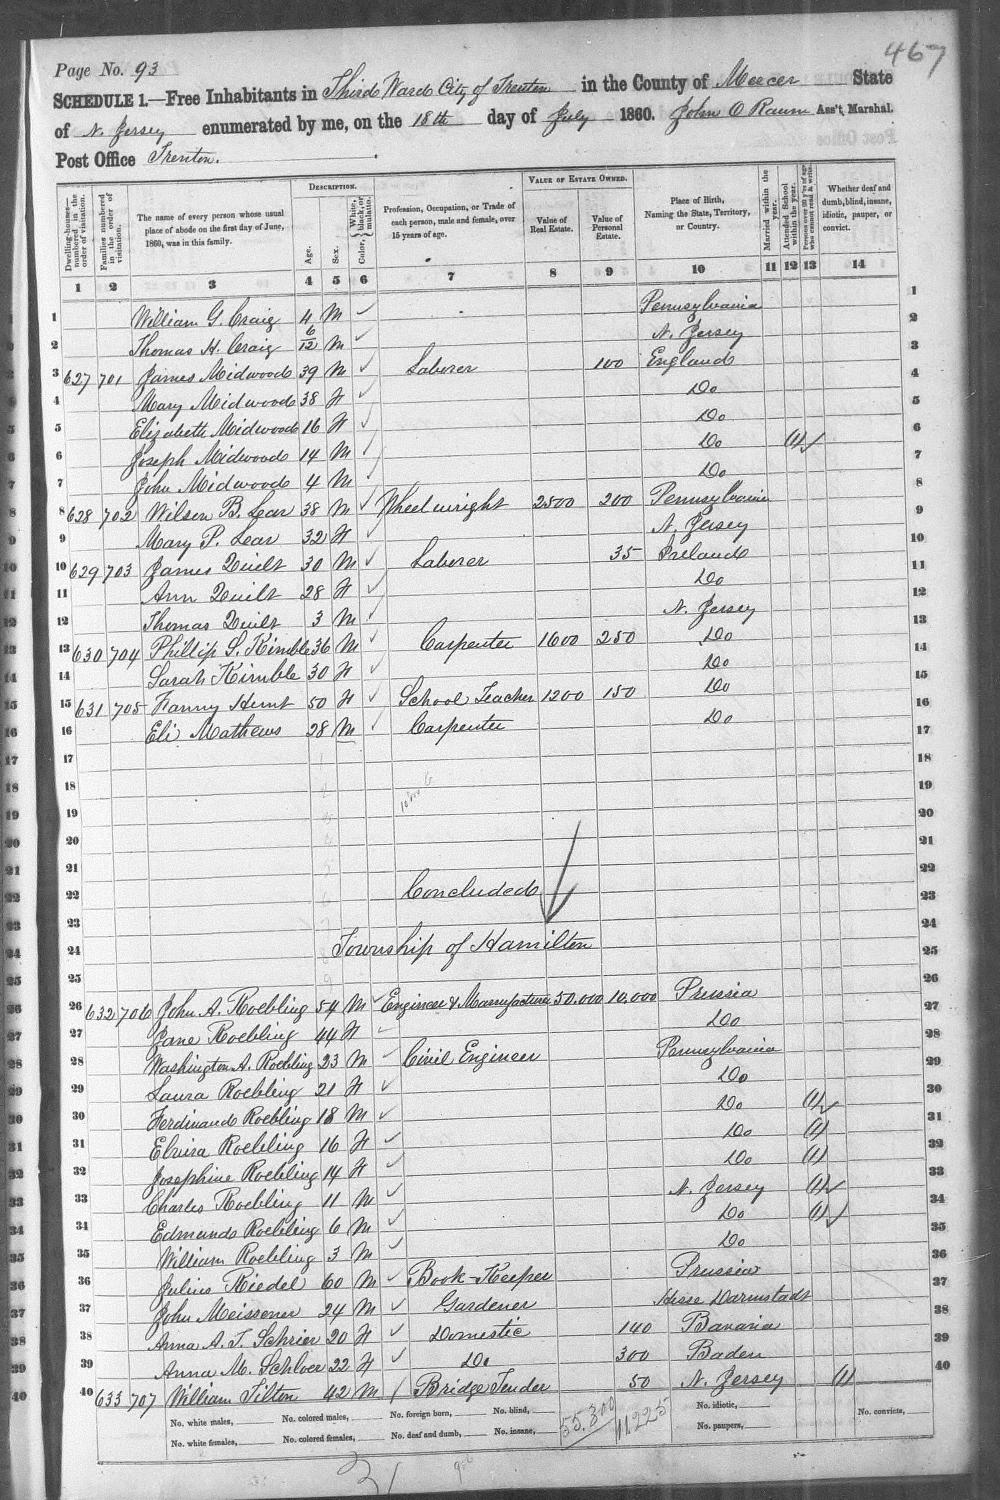 467
Page No. 93
SCHEDULE 1.—Free Inhabitants in Third Ward City of Trenton in the County of Mercer State
of N. Jersey enumerated by me, on the 18th day of July 1860. John O Raum Ass't Marshal.
Post Office Trenton.
Dwelling-houses—numbered in the order of visitation.
Families numbered in the order of visitation.
The name of every person whose usual place of abode on the first day of June, 1860, was in this family.
DESCRIPTION.
Age.
Sex.
Color, White, black, or mulatto.
Profession, Occupation, or Trade of each person, male and female, over 15 years of age.
VALUE OF ESTATE OWNED.
Value of Real Estate.
Value of Personal Estate.
Place of Birth, Naming the State, Territory, or Country.
Married within the year.
Attended School within the year.
Persons over 20 y'rs of age who cannot read & write.
Whether deaf and dumb, blind, insane, idiotic, pauper, or convict.
1 2 3 4 5 6 7 8 9 10 11 12 13 14
1 William G. Craig 4 M Pennsylvania 1
2 Thomas H. Craig 6/12 M N. Jersey 2
3 627 701 James Midwood 39 M Laborer 100 England 3
4 Mary Midwood 38 F Do 4
5 Elizabeth Midwood 16 F Do 5
6 Joseph Midwood 14 M Do (1) 6
7 John Midwood 4 M Do 7
8 628 702 Wilson B. Lear 38 M Wheelwright 2500 200 Pennsylvania 8
9 Mary P. Lear 32 F N. Jersey 9
10 629 703 James Quilt 30 M Laborer 35 Ireland 10
11 Ann Quilt 28 F Do 11
12 Thomas Quilt 3 M N. Jersey 12
13 630 704 Phillip S. Kimble 36 M Carpenter 1600 250 Do 13
14 Sarah Kimble 30 F Do 14
15 631 705 Fanny Hunt 50 F School Teacher 1200 150 Do 15
16 Eli Mathews 28 M Carpenter Do 16
17 17
18 18
19 19
20 20
21 21
22 Concluded 22
23 23
24 Township of Hamilton 24
25 25
26 632 706 John A. Roebling 54 M Engineer & Manufacturer 50.000 10.000 Prussia 26
27 Jane Roebling 44 F Do 27
28 Washington A. Roebling 23 M Civil Engineer Pennsylvania 28
29 Laura Roebling 21 F Do 29
30 Ferdinand Roebling 18 M Do (1) 30
31 Elvira Roebling 16 F Do (1) 31
32 Josephine Roebling 14 F Do (1) 32
33 Charles Roebling 11 M N. Jersey (1) 33
34 Edmund Roebling 6 M Do (1) 34
35 William Roebling 3 M Do 35
36 Julius Riedel 60 M Book-Keeper Prussia 36
37 John Meissener 24 M Gardener Hesse Darmstadt 37
38 Anna A. T. Schrier 20 F Domestic 140 Bavaria 38
39 Anna M. Schloer 22 F Do 300 Baden 39
40 633 707 William Tilton 42 M Bridge Tender 50 N. Jersey (1) 40
No. white males, No. colored males, No. foreign born, No. blind, 55.300 11.225 No. idiotic, No. convicts,
No. white females, No. colored females, No. deaf and dumb, No. insane, No. paupers,